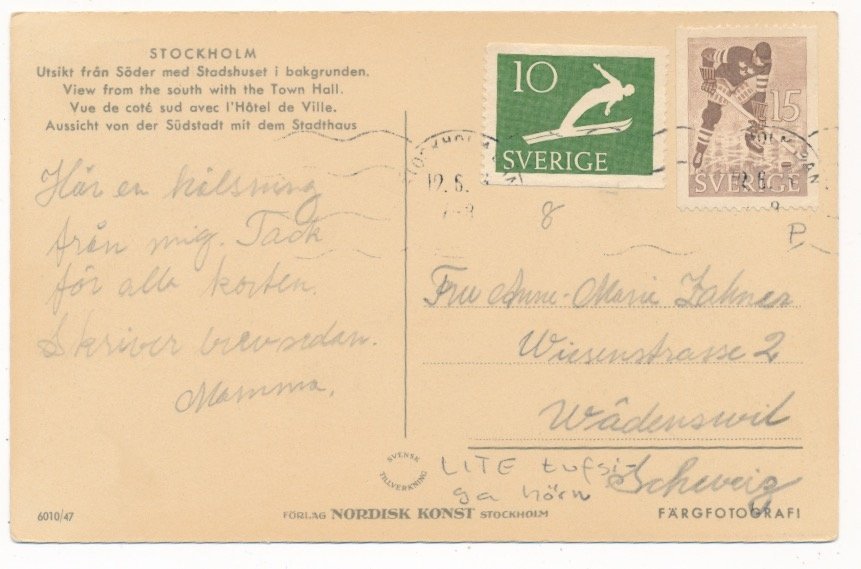 STOCKHOLM
Utsikt från Söder med Stadshuset i bakgrunden.
View from the south with the Town Hall.
Vue de coté sud avec l'Hôtel de Ville.
Aussicht von der Südstadt mit dem Stadthaus
Här en hälsning
från mig. Tack
för alla korten.
Skriver brev sedan.
Mamma.
10
SVERIGE
15
SVERIGE
STOCKHOLM
12.6.
8
P
Fru Anne-Marie Zahner
Wiesenstrasse 2
Wädenswil
Schweiz
LITE tufsi-
ga hörn
SVENSK
TILLVERKNING
6010/47
FÖRLAG NORDISK KONST STOCKHOLM
FÄRGFOTOGRAFI